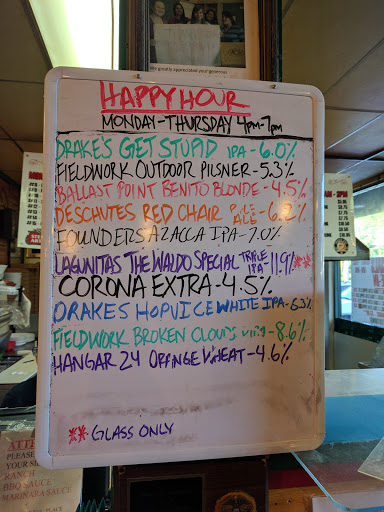 We greatly appreciated your generous
HAPPY HOUR
MONDAY-THURSDAY 4PM-7PM
DRAKE'S GET STUPID IPA-6.0%
FIELDWORK OUTDOOR PILSNER-5.3%
BALLAST POINT BENITO BLONDE-4.5%
DESCHUTES RED CHAIR PALE ALE-6.2%
FOUNDERS AZACCA IPA-7.0%
LAGUNITAS THE WALDO SPECIAL TRIPLE IPA-11.9%**
CORONA EXTRA-4.5%
DRAKES HOPVICE WHITE IPA-6.3%
FIELDWORK BROKEN CLOUDS -8.6%
HANGAR 24 ORANGE WHEAT-4.6%
** GLASS ONLY
PLEASE
YOUR
RANCH
BBQ SAUCE
MARINARA SAUCE